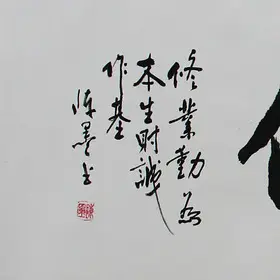 修業勤為
本生財誠
作基
陈墨书